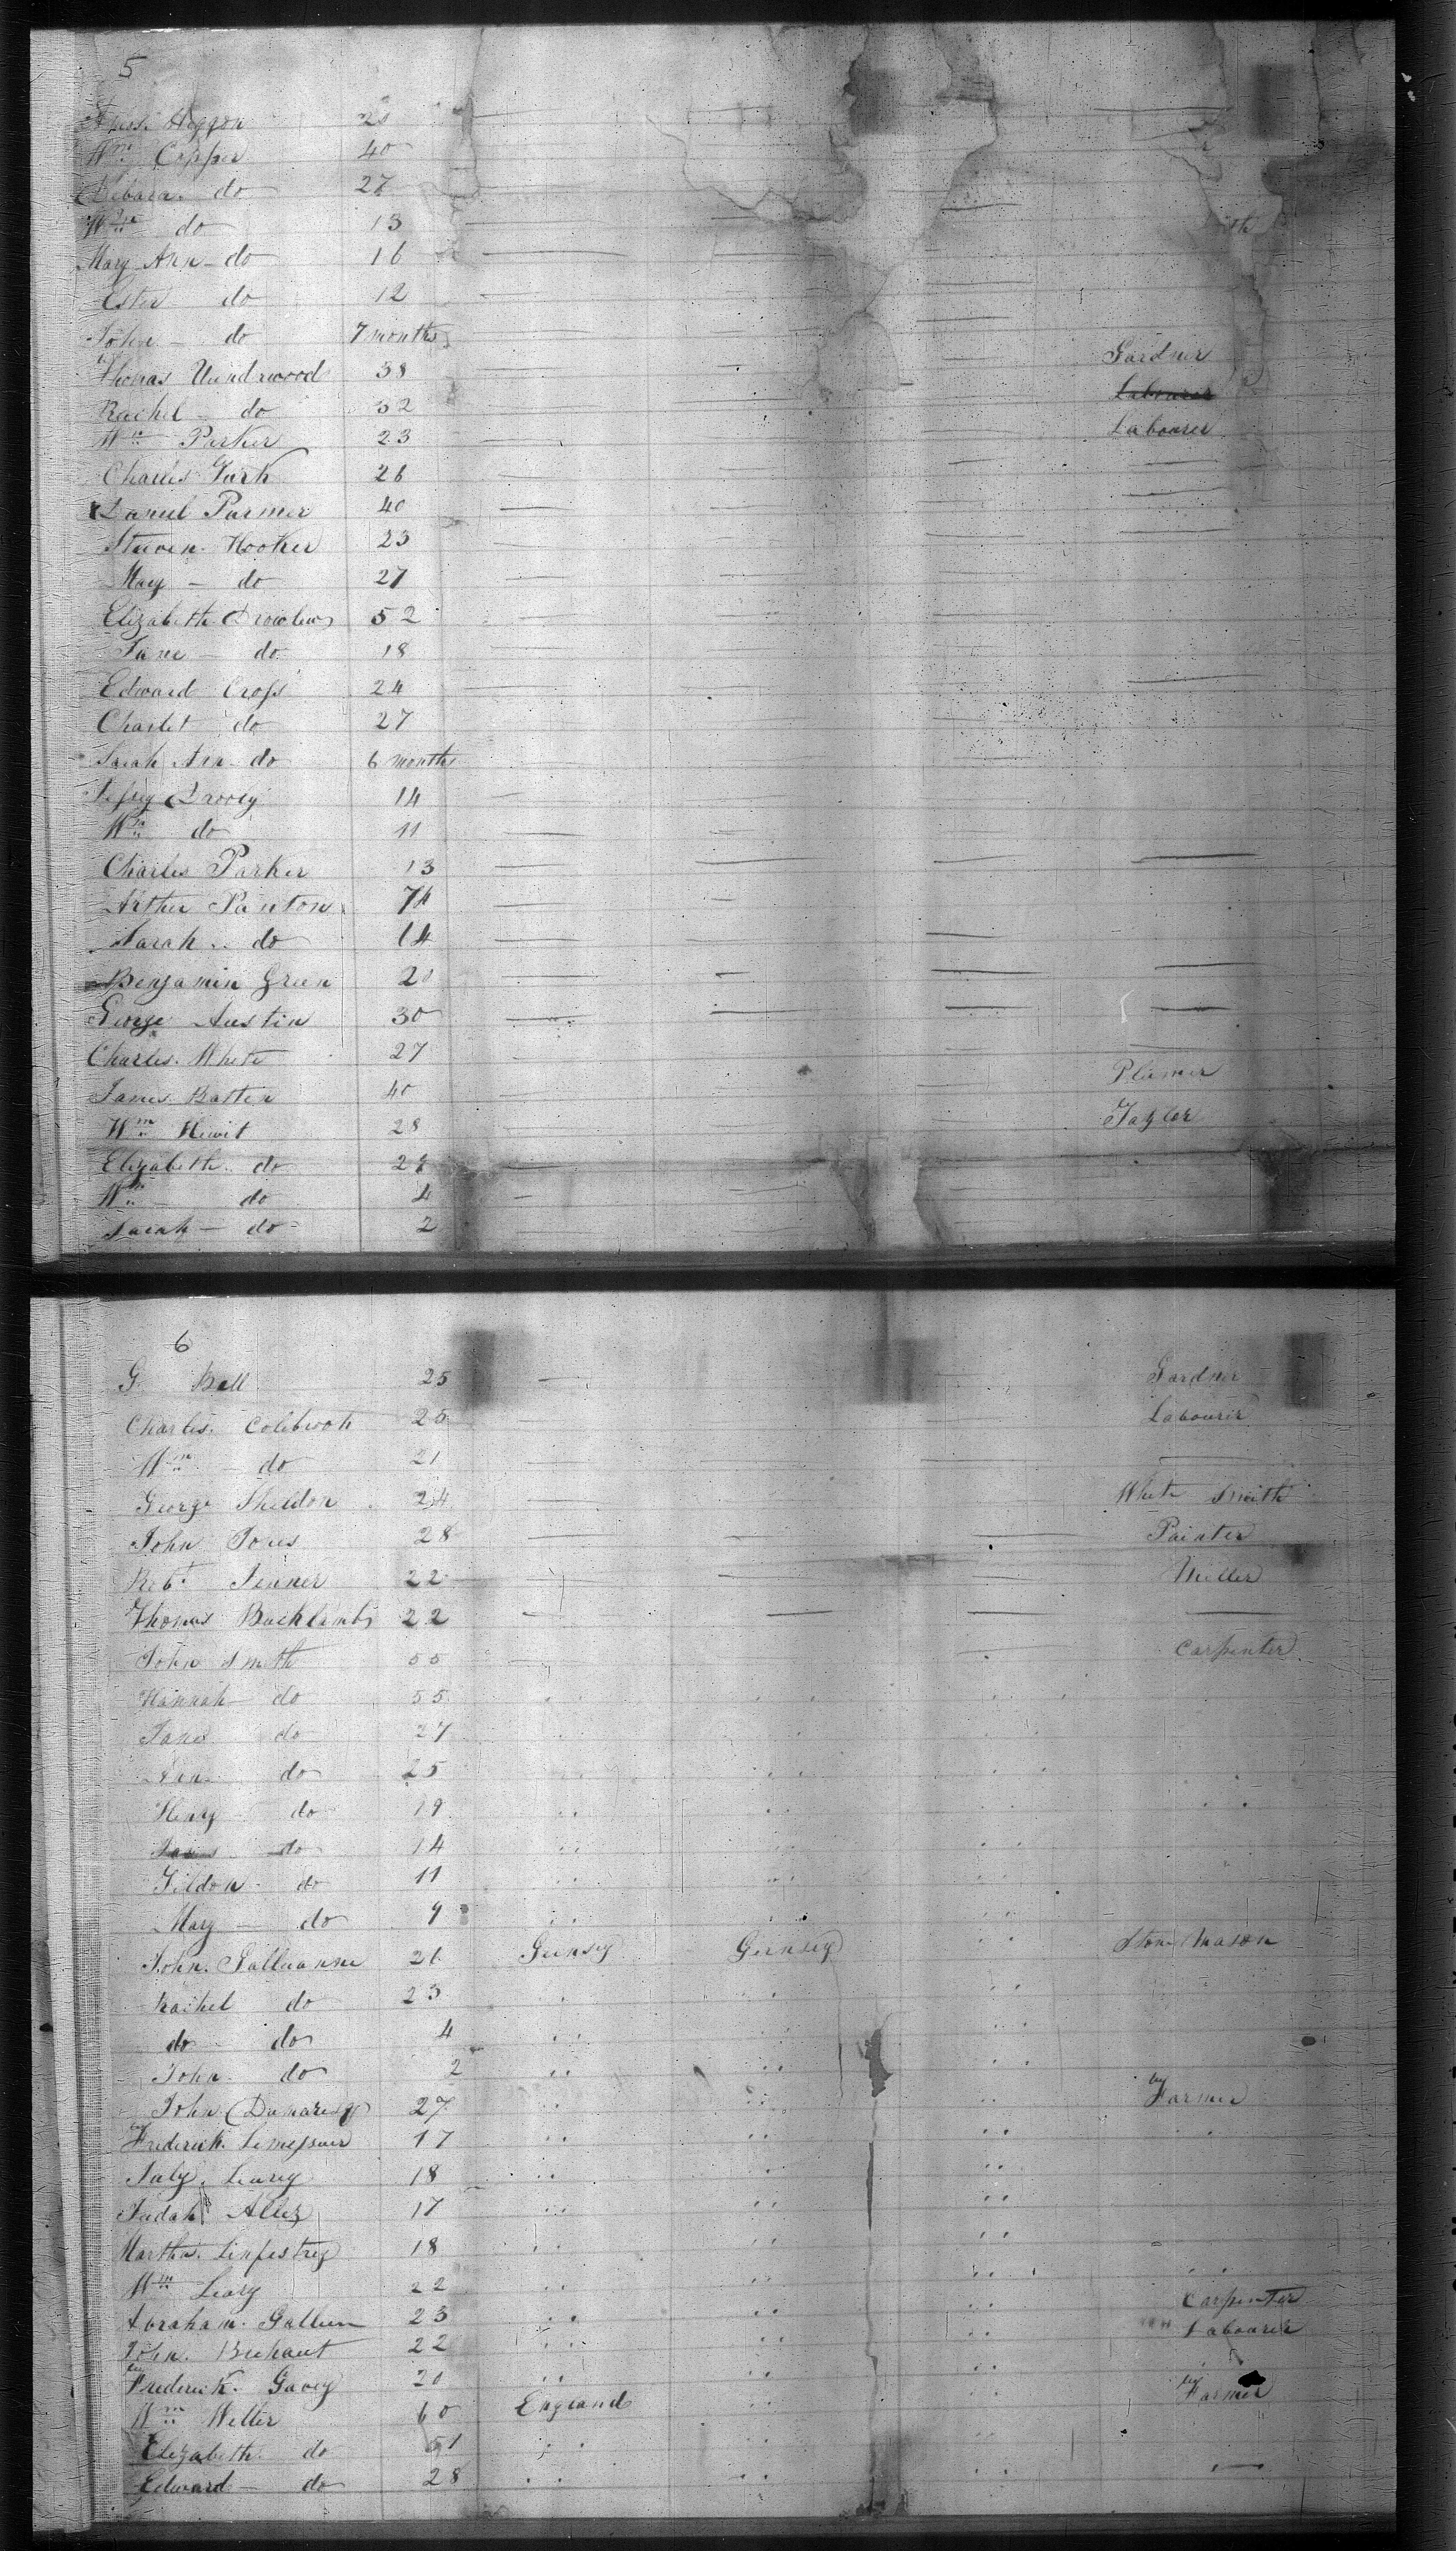 5
Higgon 20
Wm Copper 40
do 27
Wm do 13
Mary Ann do 16
Ester do 12
John do 7 months
Thomas Undrwood 38 Gardner
Rachel do 32 Labourer
Wm Parker 23 Labourer
Charles 26
Daniel Parmer 40
Steven Hooker 23
May do 27
Elizabeth 52
Jane do 18
Edward Cross 24
Charlot do 27
Sarah Ann do 6 months
14
Wm do 11
Charles Parker 13
Arther Panton 74
Sarah do 14
Benjamin Green 20
George Austin 30
Charles White 27
James Batten 40 Plumer
Wm Hewit 28 Tayler
Elizabeth do 27
Wm do 4
Sarah do 2
6
G Ball 25 Gardner
Charles Colebrook 25 Labourer
Wm do 21
George Sheldon 24 White Smith
John Jones 28 Painter
Robt Jenner 22 Miller
Thomas 22
John Smith 55 Carpenter
Hannah do 55
Jane do 27
Ann do 25
Henry do 19
do 14
do 11
Mary do 9
John 26 Gernsey Gernsey Stone Mason
Rachel do 23
do do 4
John do 2
John Dumaresq 27 Farmer
Frederick 17
July Leary 18
Judah Allez 17
Martha 18
Wm Leary 22
Abraham 23 Carpenter
John 22 Labourer
Frederick Gavey 20 Farmer
Wm Weller 60 England
Elizabeth do 51
Edward do 28